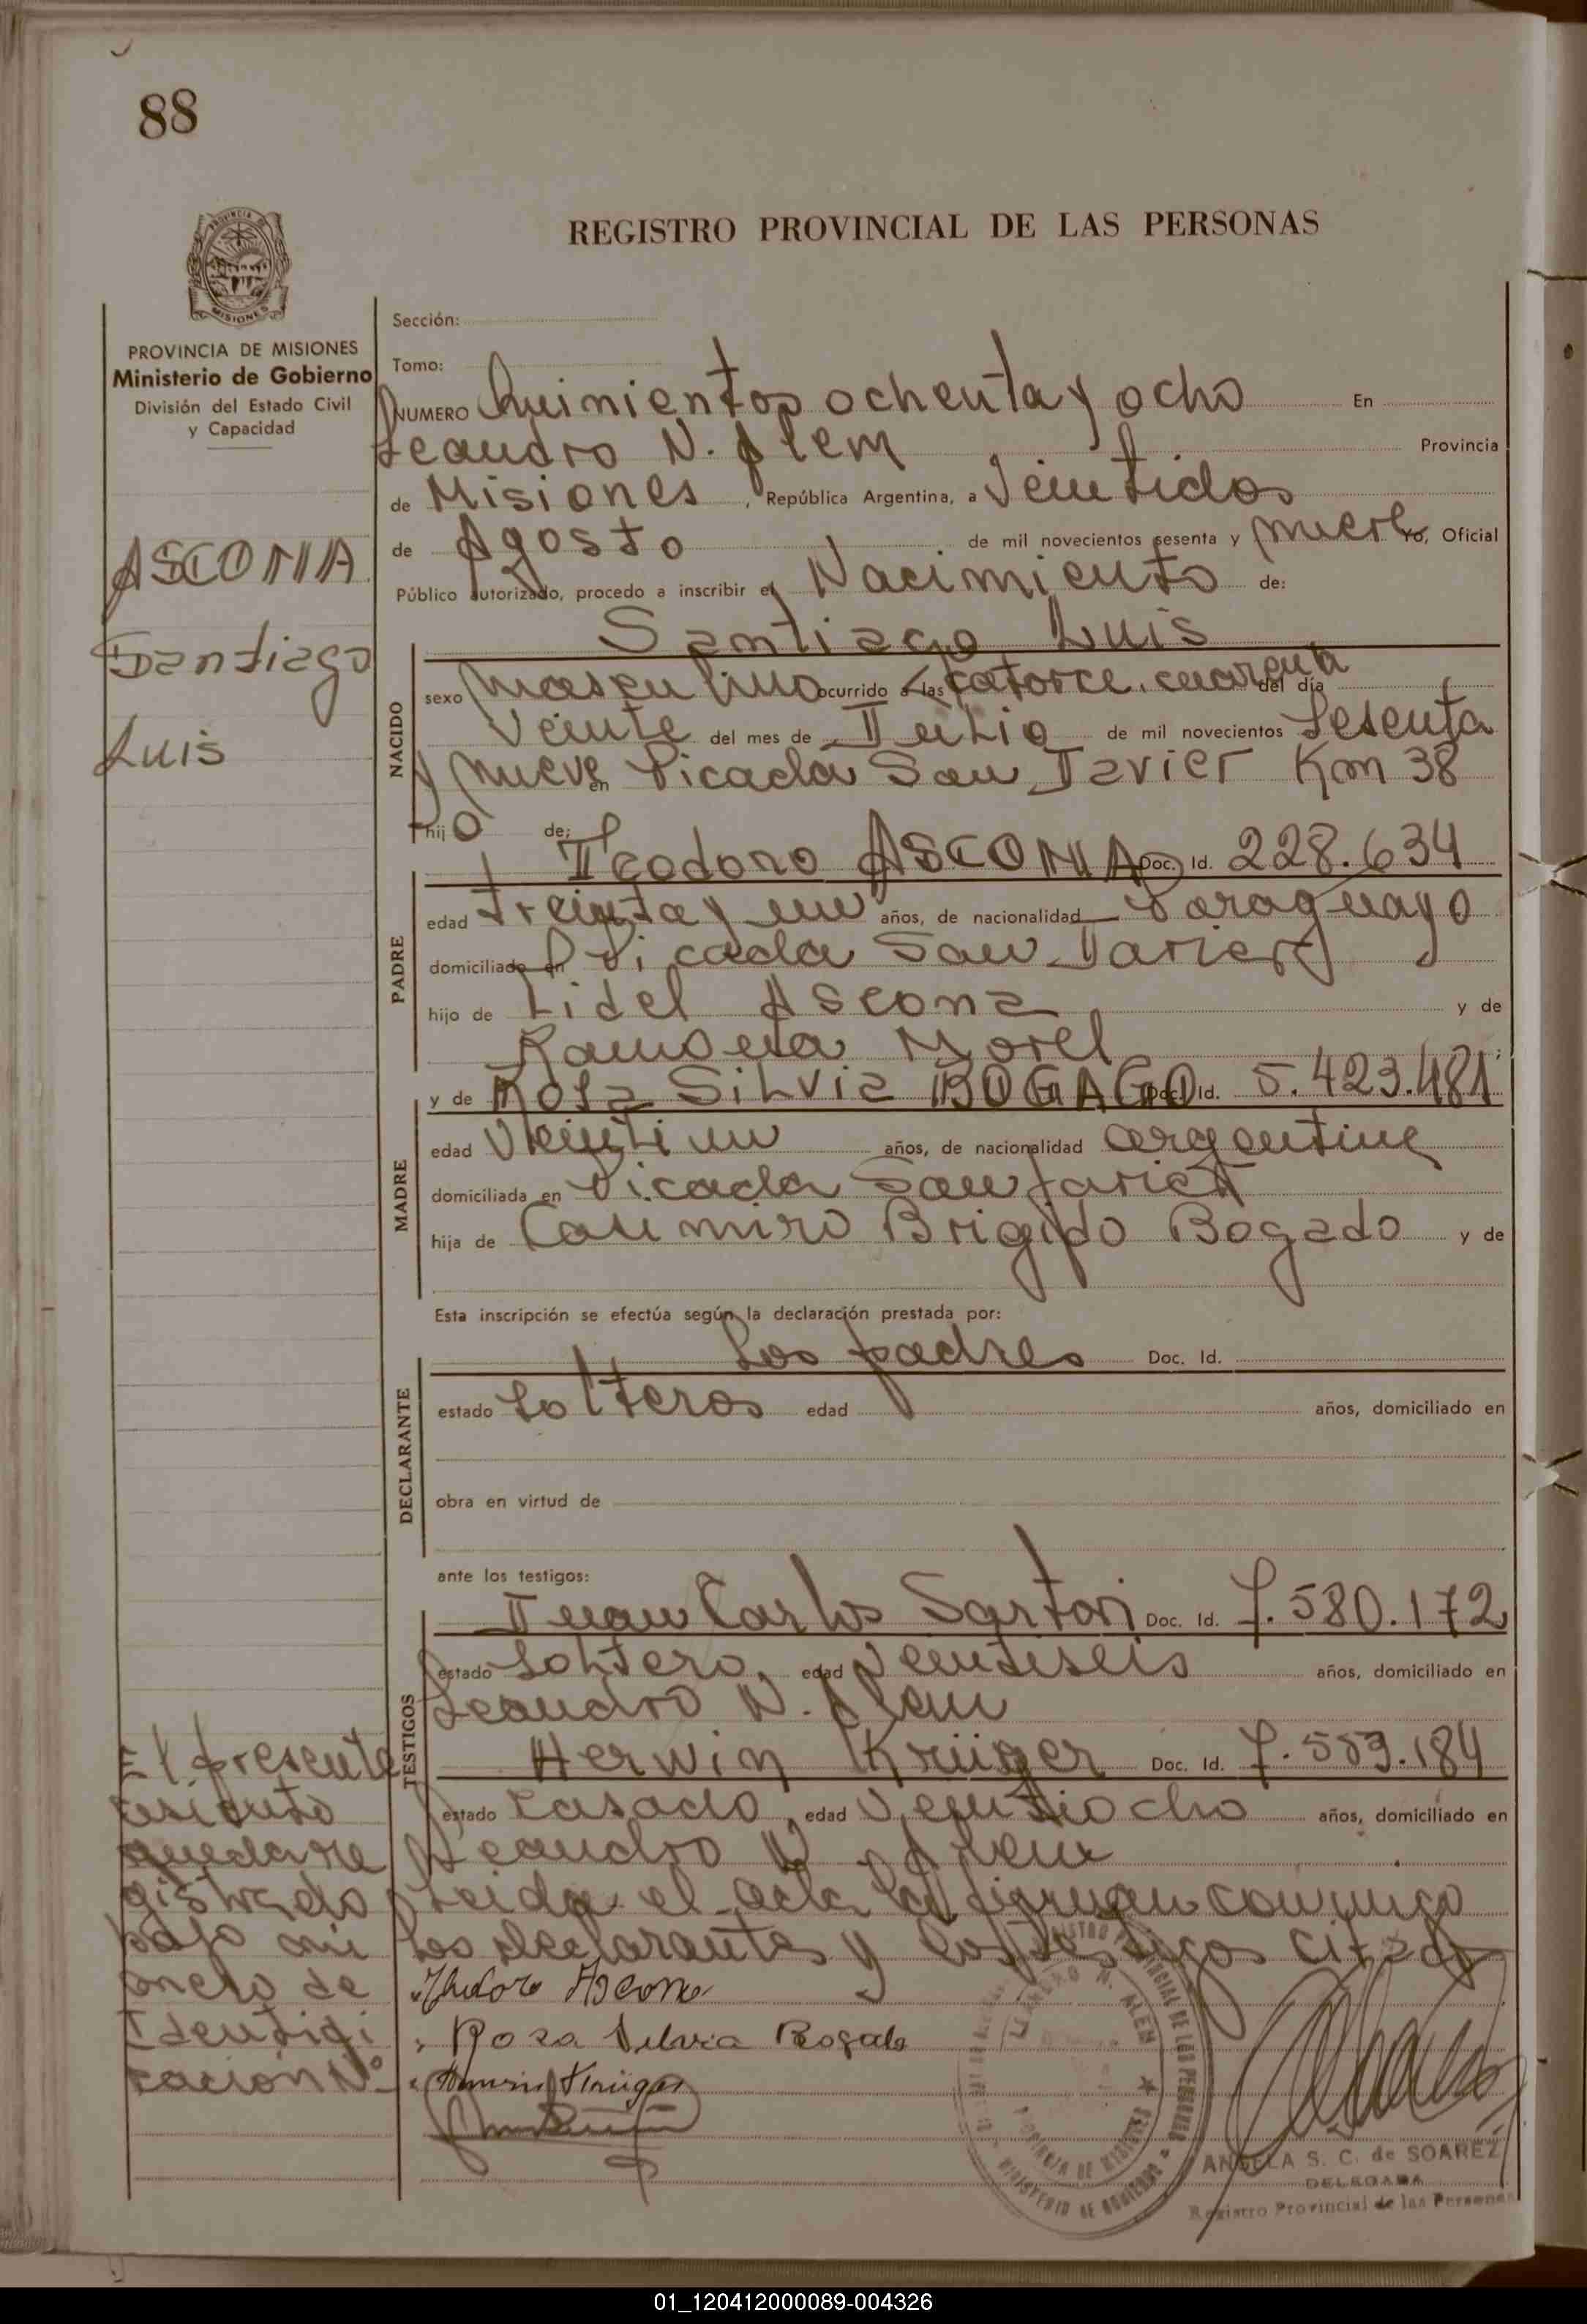 88
REGISTRO PROVINCIAL DE LAS PERSONAS
MISIONES
PROVINCIA DE MISIONES
Ministerio de Gobierno
División del Estado Civil
y Capacidad
ASCONA
Santiago
Luis
Sección:
Tomo:
NUMERO Quinientos ochenta y ocho En
Leandro N. Alem Provincia
de Misiones, República Argentina, a Veintidos
de Agosto de mil novecientos sesenta y nueve Yo, Oficial
Público autorizado, procedo a inscribir el Nacimiento de:
Santiago Luis
NACIDO
sexo masculino ocurrido a las catorce, cuarenta del día
Veinte del mes de Julio de mil novecientos Sesenta
y nueve en Picada San Javier Km 38
hijo de:
Teodoro ASCONA Doc. Id. 228.634
PADRE
edad treinta y un años, de nacionalidad Paraguayo
domiciliado en Picada San Javier
hijo de Fidel Ascona y de
Ramona Morel
y de Rosa Silvia BOGADO Doc. Id. 5.423.481
MADRE
edad Veintiun años, de nacionalidad argentina
domiciliada en Picada San Javier
hija de Casimiro Brigido Bogado y de
Esta inscripción se efectúa según la declaración prestada por:
Los padres Doc. Id.
DECLARANTE
estado Solteros edad años, domiciliado en
obra en virtud de
ante los testigos:
Juan Carlos Sartori Doc. Id. 7.580.172
TESTIGOS
estado Soltero, edad Veintiseis años, domiciliado en
Leandro N. Alem
Herwin Krüger Doc. Id. 7.559.184
estado casado, edad Veintiocho años, domiciliado en
Leandro N. Alem
Leida el acta la firman conmigo
los declarantes y los testigos citados
El presente
asiento
queda re
gistrado
bajo nú
mero de
Identifi
cación Nº
Theodoro Ascona
Rosa Silvia Bogado
Krüger
LEANDRO N. ALEM
PROVINCIA DE MISIONES
REGISTRO PROVINCIAL DE LAS PERSONAS
MINISTERIO DE GOBIERNO
ANGELA S. C. de SOAREZ
DELEGADA
Registro Provincial de las Personas
01_120412000089-004326